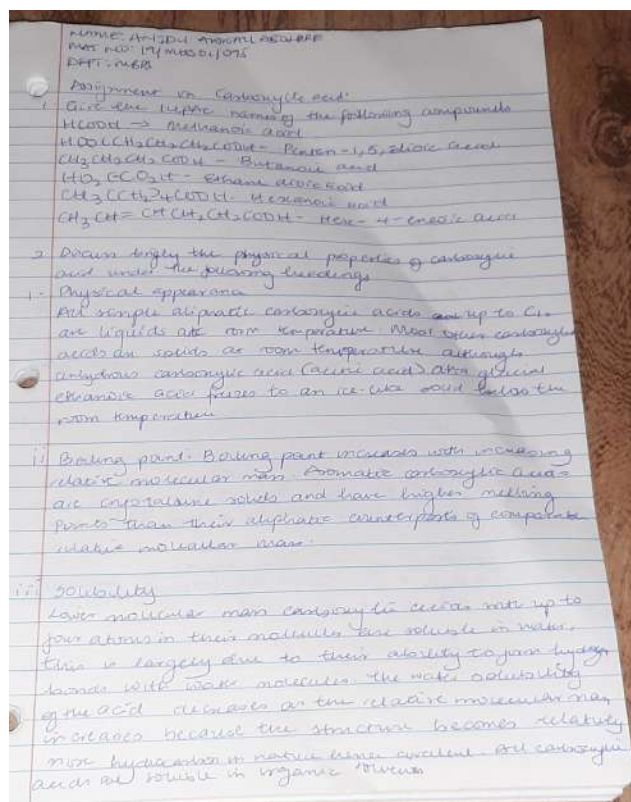 NAME: ANIZOU ABIGAIL
MAT NO: 19/MHS01/095
DEPT: MBBS
Assignment on Carboxylic acid.
1 Give the iupac names of the following compounds
HCOOH → Methanoic acid
HOOCCH2CH2CH2COOH - Pentan-1,5, dioic acid
CH3CH2CH2COOH - Butanoic acid
HO2CCO2H - Ethane dioic acid
CH3(CH2)4COOH - Hexanoic acid
CH3CH=CHCH2CH2COOH - Hex-4-enoic acid
2 Discuss briefly the physical properties of carboxylic
acid under the following headings
i - Physical appearance
All simple aliphatic carboxylic acids up to C10
are liquids at room temperature. Most other carboxylic
acids are solids at room temperature although
anhydrous carboxylic acid (acetic acid) aka glacial
ethanoic acid freezes to an ice-like solid below the
room temperature
ii Boiling point. Boiling point increases with increasing
relative molecular mass. Aromatic carboxylic acids
are crystalline solids and have higher melting
points than their aliphatic counterparts of comparable
relative molecular mass.
iii Solubility
Lower molecular mass carboxylic acids with up to
four atoms in their molecules are soluble in water,
this is largely due to their ability to form hydrogen
bonds with water molecules. The water solubility
of the acid decreases as the relative molecular mass
increases because the structure becomes relatively
more hydrocarbon in nature hence covalent. All carboxylic
acids are soluble in organic solvents